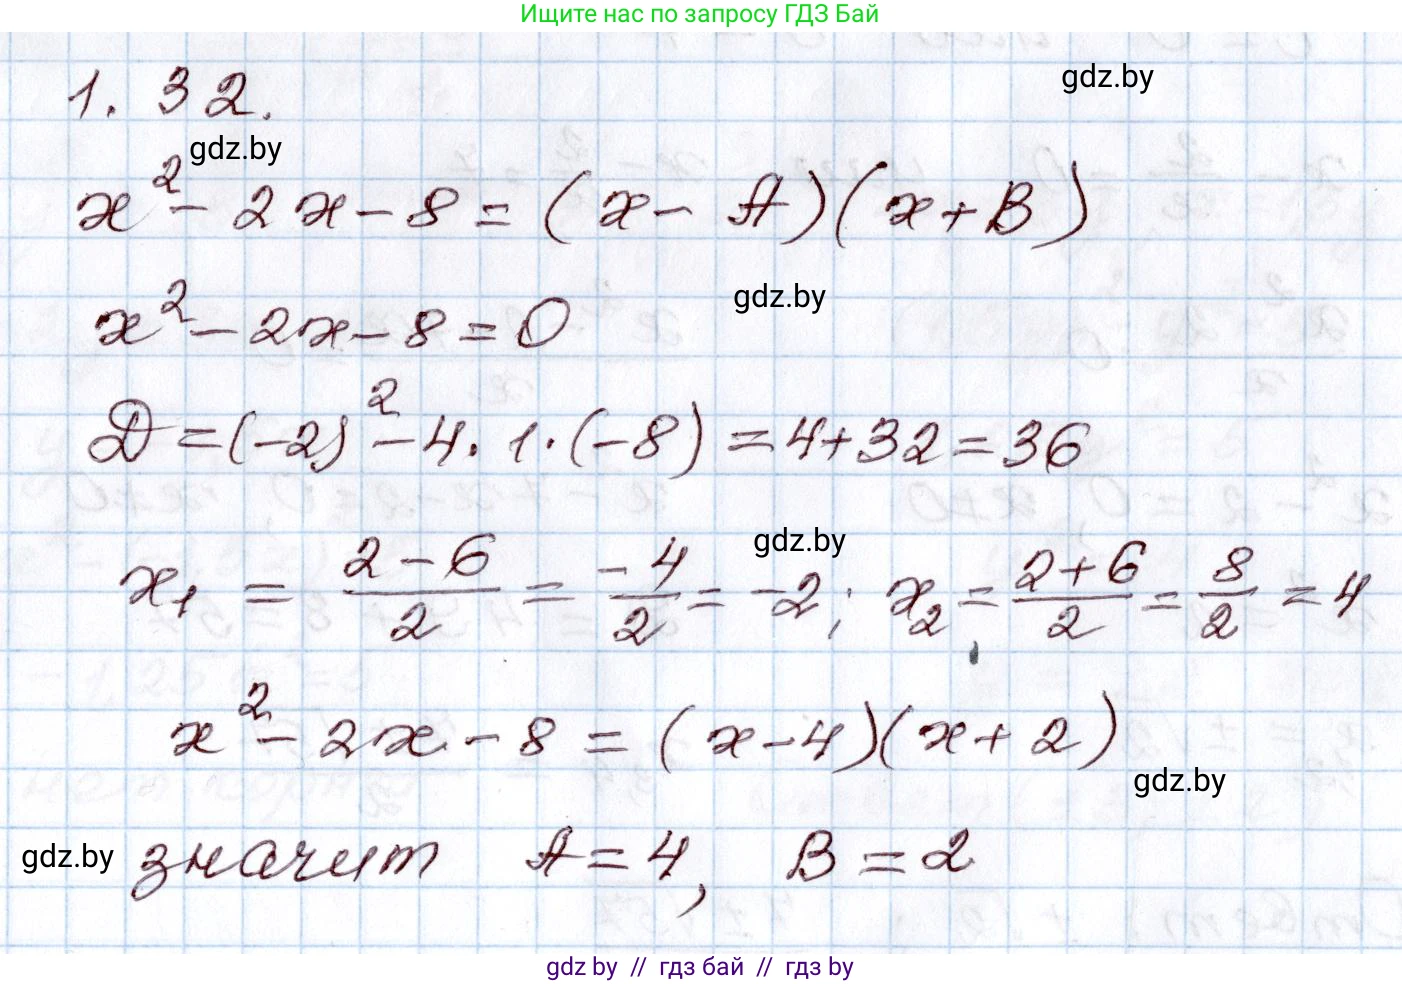 Ищите нас по запросу ГДЗ Бай
1. 32.
gdz.by
gdz.by
x² - 2x - 8 = (x - A)(x + B)
gdz.by
x² - 2x - 8 = 0
D = (-2)² - 4 · 1 · (-8) = 4 + 32 = 36
gdz.by
x₁ = (2 - 6)/2 = -4/2 = -2; x₂ = (2 + 6)/2 = 8/2 = 4
x² - 2x - 8 = (x - 4)(x + 2)
gdz.by
gdz.by
значит A = 4, B = 2
gdz.by // гдз бай // гдз by